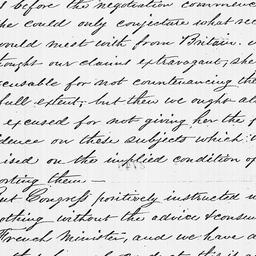 before the negotiation commenc
he could only conjecture what
would meet with from Britain.
ought our claims extravagant, she
cusable for not countenancing the
full extent; but then we ought al
excused for not giving her the
dence on those subjects which
ised on the implied condition of
orting them —
ut Congress positively instructed
othing without the advice & consen
French Minister, and we have a